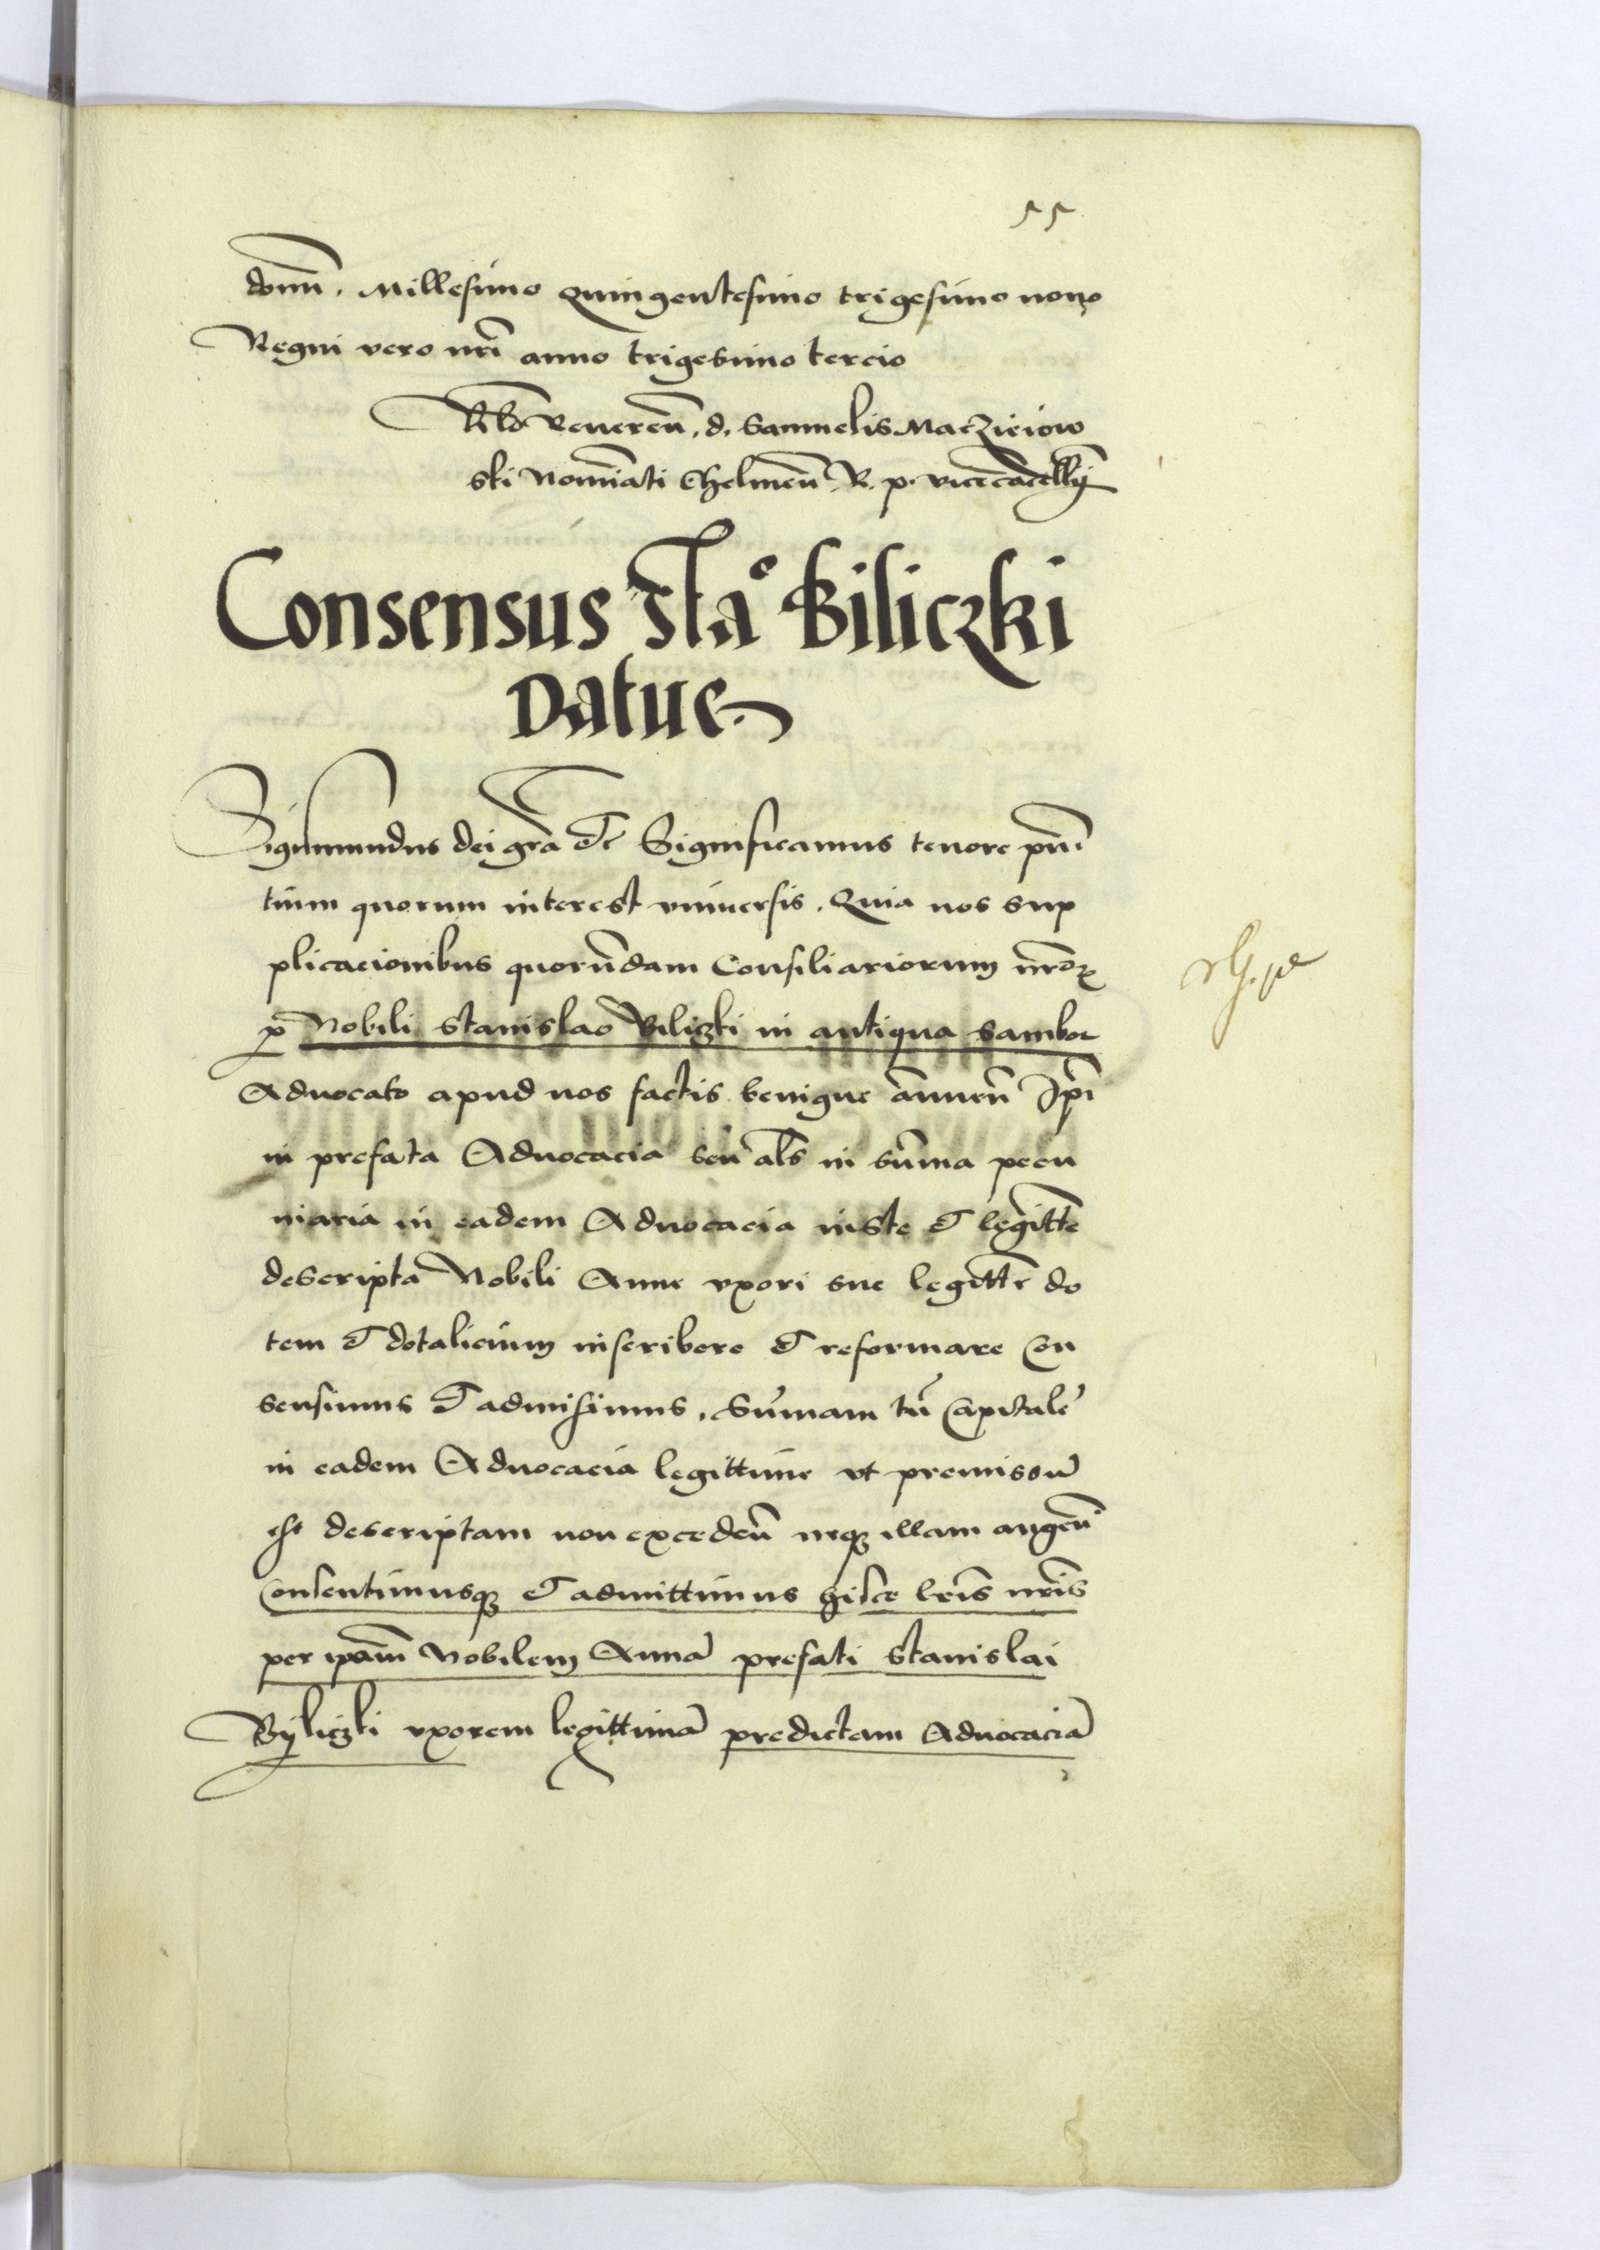 55
domi͞n. Millesimo Quingentesimo trigesimo nono
Regni vero nr͞i anno trigesimo tercio
Rel͞o Veneren͞. d. Samuelis Maczieiow
ski Nomi͞ati Chelmen͞. R. p. vicecācell͞ij
Consensus Sta͞o Biliczki
Datur.
Sigismundus dei gr͞a et͞c Significamus tenore pn͞
tium quorum interest vniuersis. Quia nos sup
plicacionibus quorūdam Consiliariorum nr͞oꝝ
ꝓ Nobili Stanislao Biliczki in antiqua Sambor
Aduocato apud nos factis benigne ānuen͞ Ip͞i
in prefata Aduocacia seu al͞s in sūma pecu
niaria in eadem Aduocacia iuste et legitt͞e
descripta Nobili Anne vxori sue legitt͞e do
tem et dotalicium inscribere et reformare Con
sensimus et admisimus. Sūmam tn͞ Capitalē
in eadem Aduocacia legittime vt premissū
est descriptam non exceden͞ neqꝫ illam augen͞
Consentimusqꝫ et admittimus hisce lr͞is nr͞is
per ip͞am Nobilem Annā prefati Stanislai
Byliczki vxorem legittimā predictam Aduocaciā